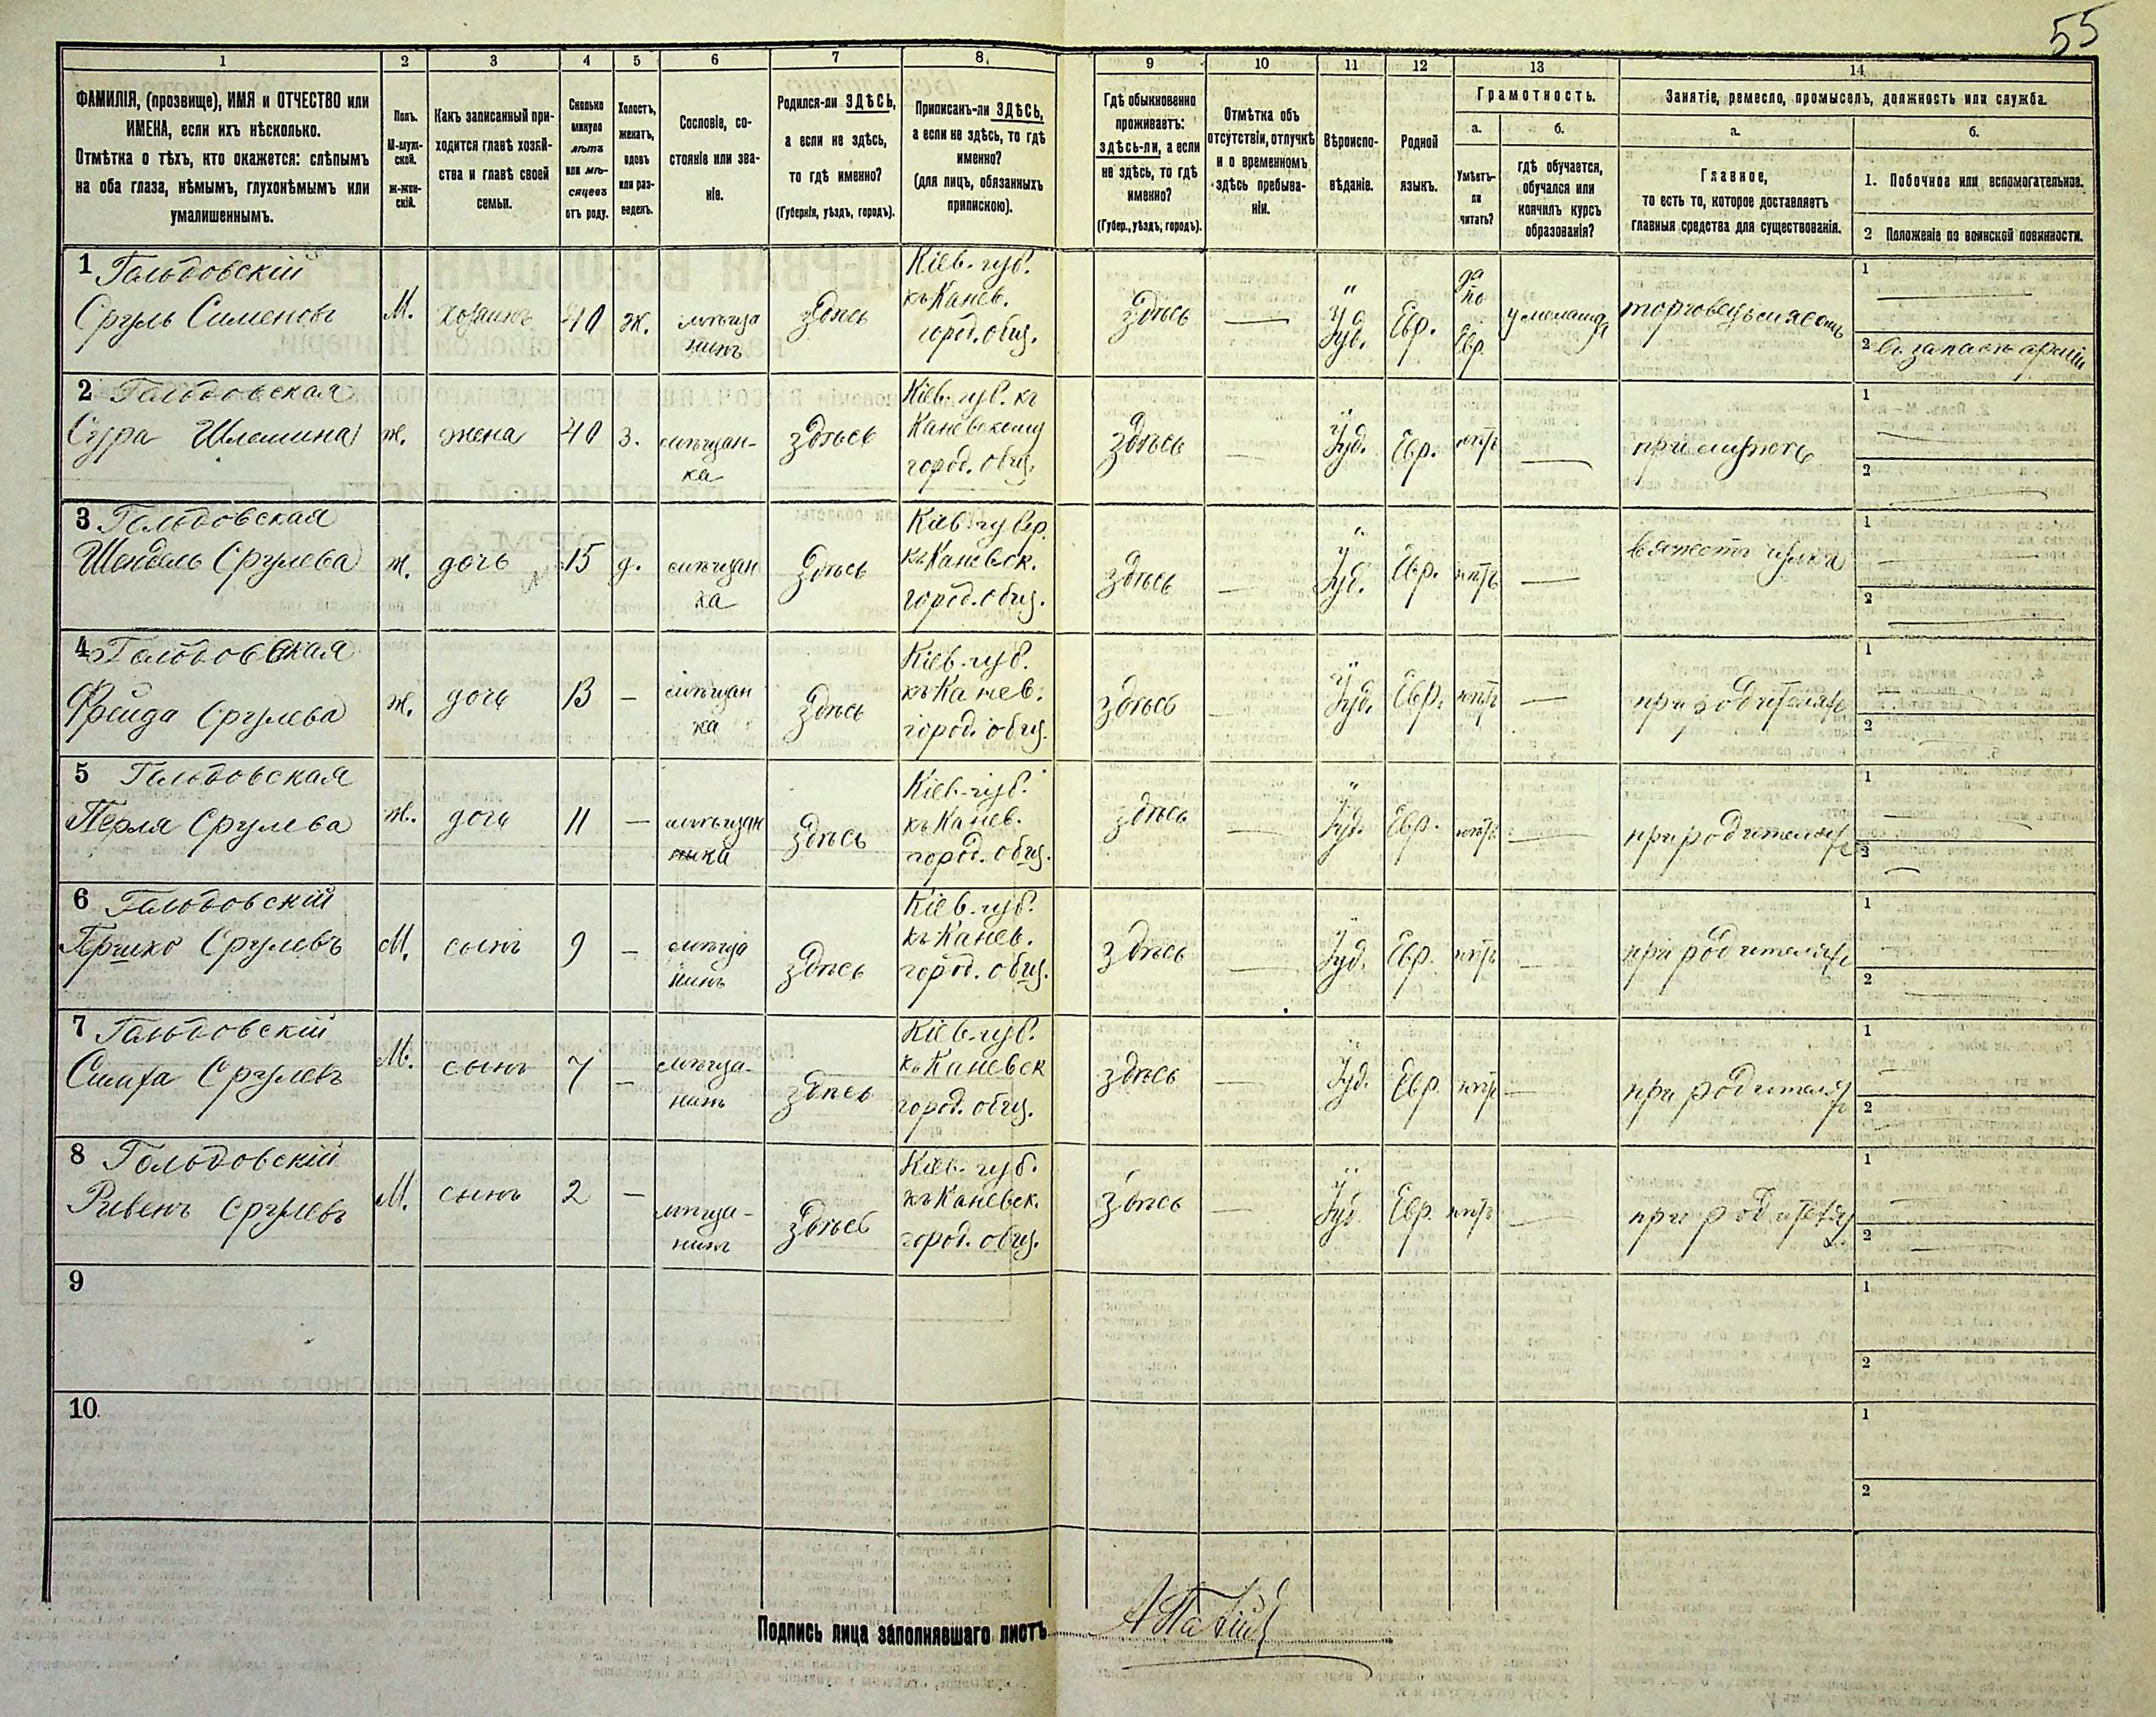 55
1
2
3
4
5
6
7
8.
9
10
11
12
13
14
ФАМИЛІЯ, (прозвище), ИМЯ и ОТЧЕСТВО или
ИМЕНА, если ихъ нѣсколько.
Отмѣтка о тѣхъ, кто окажется: слѣпымъ
на оба глаза, нѣмымъ, глухонѣмымъ или
умалишеннымъ.
Полъ.
М-муж-
ской.
ж-жен-
скій.
Какъ записанный при-
ходится главѣ хозяй-
ства и главѣ своей
семьи.
Сколько
минуло
лѣтъ
или мѣ-
сяцевъ
отъ роду.
Холостъ,
женатъ,
вдовъ
или раз-
веденъ.
Сословіе, со-
стояніе или зва-
ніе.
Родился-ли ЗДѢСЬ,
а если не здѣсь,
то гдѣ именно?
(Губернія, уѣздъ, городъ).
Приписанъ-ли ЗДѢСЬ,
а если не здѣсь, то гдѣ
именно?
(для лицъ, обязанныхъ
припискою).
Гдѣ обыкновенно
проживаетъ:
здѣсь-ли, а если
не здѣсь, то гдѣ
именно?
(Губер., уѣздъ, городъ).
Отмѣтка объ
отсутствіи, отлучкѣ
и о временномъ
здѣсь пребыва-
ніи.
Вѣроиспо-
вѣданіе.
Родной
языкъ.
Грамотность.
а.
Умѣетъ-
ли
читать?
б.
гдѣ обучается,
обучался или
кончилъ курсъ
образованія?
Занятіе, ремесло, промыселъ, должность или служба.
а.
Главное,
то есть то, которое доставляетъ
главныя средства для существованія.
б.
1. Побочное или вспомогательное.
2 Положеніе по воинской повинности.
1 Гольдовскій
Сруль Сименовъ
М.
хозяинъ
40
ж.
мѣща
нинъ
здѣсь
Кіев. губ.
къ Канев.
город. общ.
здѣсь
Іуд.
Евр.
да
по
Евр.
у меламда
торговецъ мясомъ
1
2 Въ запасѣ арміи
2 Гольдовская
Сура Шлемина
ж.
жена
40
з.
мѣщан-
ка
здѣсь
Кіев. губ. къ
Каневскому
город. общ.
здѣсь
Іуд.
Евр.
нѣтъ
при мужѣ
1
2
3 Гольдовская
Шендель Срулева
ж.
дочь
15
д.
мѣщан
ка
здѣсь
Кіев. губер.
къ Каневск.
город. общ.
здѣсь
Іуд.
Евр.
нѣтъ
вяжетъ чулки
1
2
4 Гольдовская
Фрейда Срулева
ж.
дочь
13
мѣщан
ка
здѣсь
Кіев. губ.
къ Канев.
город. общ.
здѣсь
Іуд.
Евр.
нѣтъ
при родителяхъ
1
2
5 Гольдовская
Перля Срулева
ж.
дочь
11
мѣщан
ка
здѣсь
Кіев. губ.
къ Канев.
город. общ.
здѣсь
Іуд.
Евр.
нѣтъ
при родителяхъ
1
2
6 Гольдовскій
Гершко Срулевъ
М.
сынъ
9
мѣща
нинъ
здѣсь
Кіев. губ.
къ Канев.
город. общ.
здѣсь
Іуд.
Евр.
нѣтъ
при родителяхъ
1
2
7 Гольдовскій
Симха Срулевъ
М.
сынъ
7
мѣща-
нинъ
здѣсь
Кіев. губ.
къ Каневск
город. общ.
здѣсь
Іуд.
Евр.
нѣтъ
при родителях
1
2
8 Гольдовскій
Рувенъ Срулевъ
М.
сынъ
2
мѣща-
нинъ
здѣсь
Кіев. губ.
къ Каневск.
город. общ.
здѣсь
Іуд.
Евр.
нѣтъ
при родителях
1
2
9
1
2
10.
1
2
Подпись лица заполнявшаго листъ